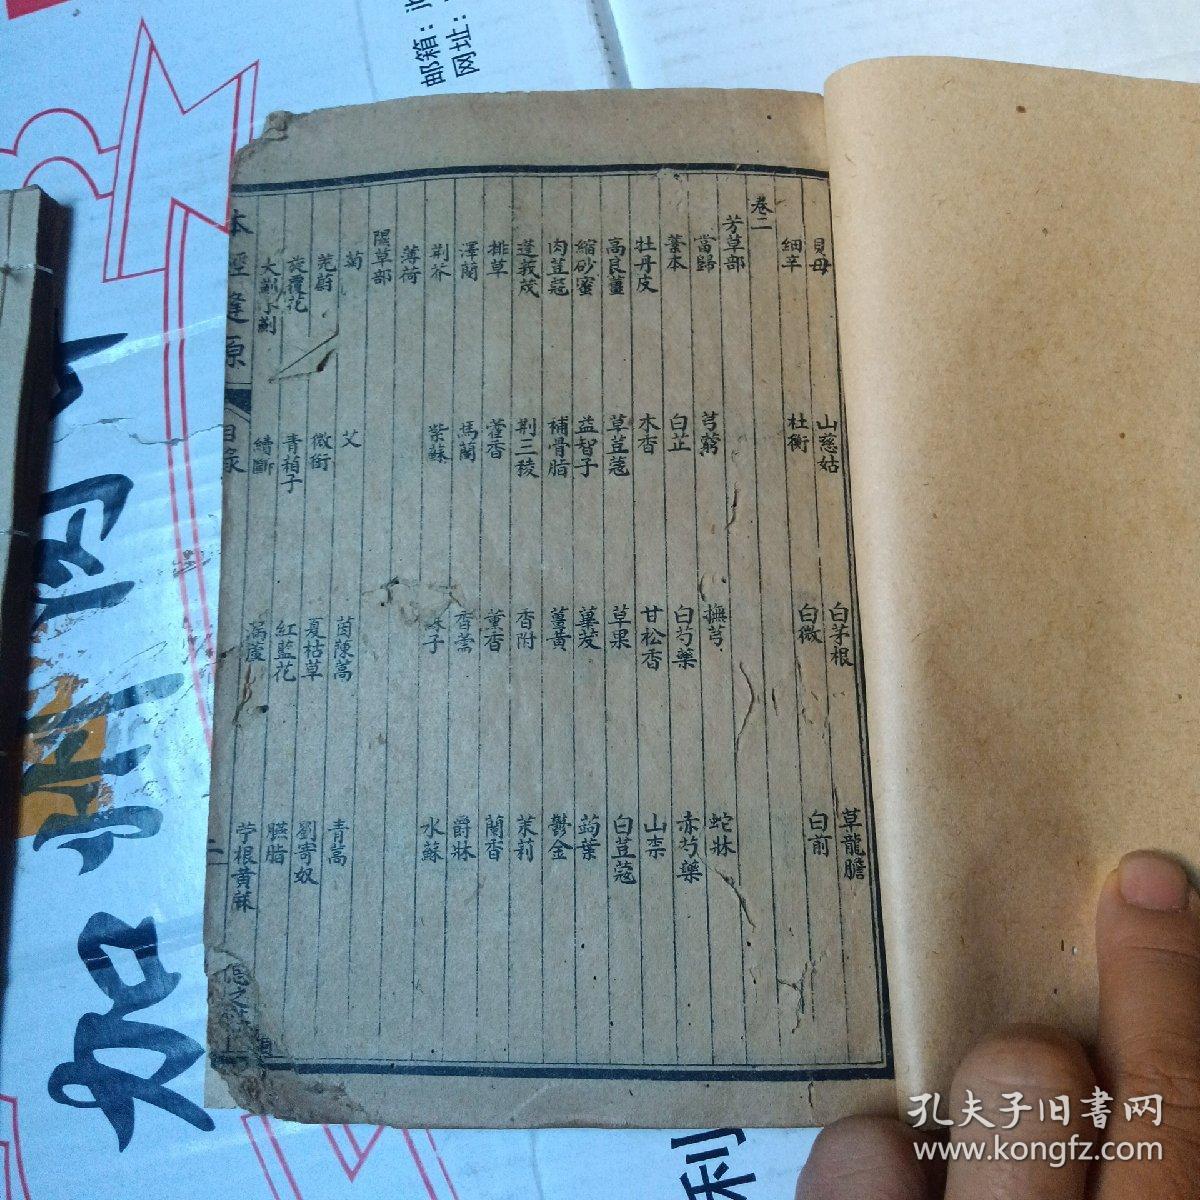 貝母 山慈姑 白茅根 草龍膽
細辛 杜衡 白微 白前
卷二
芳草部
當歸 芎藭 蘼芎 蛇牀
藁本 白芷 白芍藥 赤芍藥
牡丹皮 木香 甘松香 山柰
高良薑 草荳蔻 草果 白荳蔻
縮砂蜜 益智子 蓽茇 蒟葉
肉荳蔻 補骨脂 薑黃 鬱金
蓬莪茂 荆三稜 香附 茉莉
排草 藿香 薰香 蘭香
澤蘭 馬蘭 香薷 爵牀
荆芥 紫蘇 子 水蘇
薄荷
隰草部
菊 艾 茵陳蒿 青蒿
茺蔚 微銜 夏枯草 劉寄奴
旋覆花 青葙子 紅藍花 臙脂
大薊小薊 續斷 漏蘆 苧根黃麻
本經逢原
目錄
二
邮箱:
网址:
孔夫子旧書网
www.kongfz.com